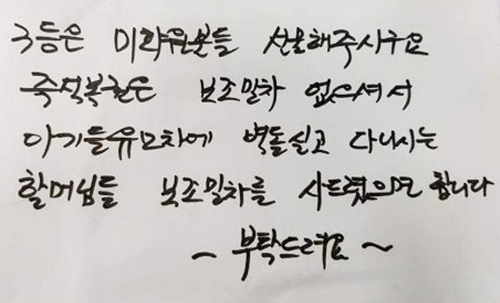 3등은 미화원분들 선물해주시구요
즉석복권은 보조밀차 없으셔서
아기들유모차에 벽돌싣고 다니시는
할머님들 보조밀차를 사드렸으면 합니다
~ 부탁드려요 ~